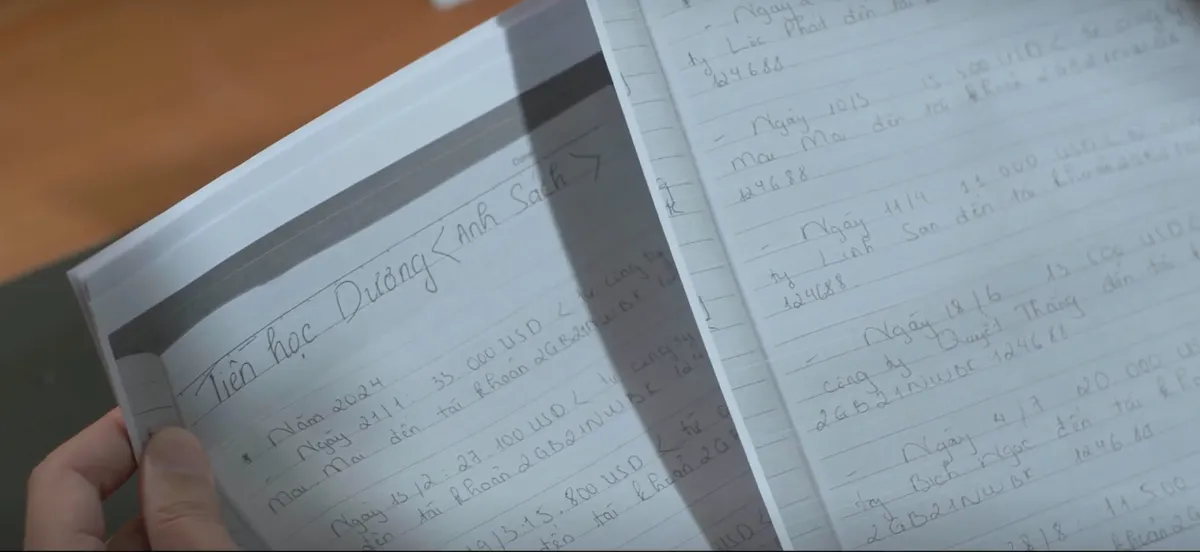 Tiền học Dương < Anh Sách >
* Năm 2024
- Ngày 21/1. 33 000 USD < từ công ty
Mai Mai đến tài khoản 2GB21NWBK 124
Ngày 15/2: 27 100 USD < từ công ty
đến tài khoản 2GB21NWBK 124
19/3: 15.800 USD < từ
đến tài khoản 2GB
USD <
- Ngày
ty Lộc Phát đến tài
124688
- Ngày 10/3
Mai Mai đến tài khoản 2GB21NWBK
124688
- Ngày 11/4 11 000 USD <
ty Linh San đến tài khoản
124688
- Ngày 18/6 13 600 USD <
công ty Quyết Thắng đến tài
2GB21NWBK 124688
- Ngày 4/7 20.000
ty Bích Ngọc đến tài
2GB21NWBK 124688
28/8. 11.500
khoản 2G